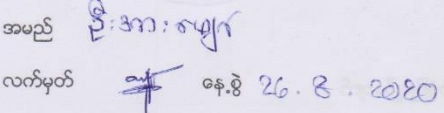 အမည် ဦးအားမျှော်
လက်မှတ် နေ့စွဲ 26.8.2020